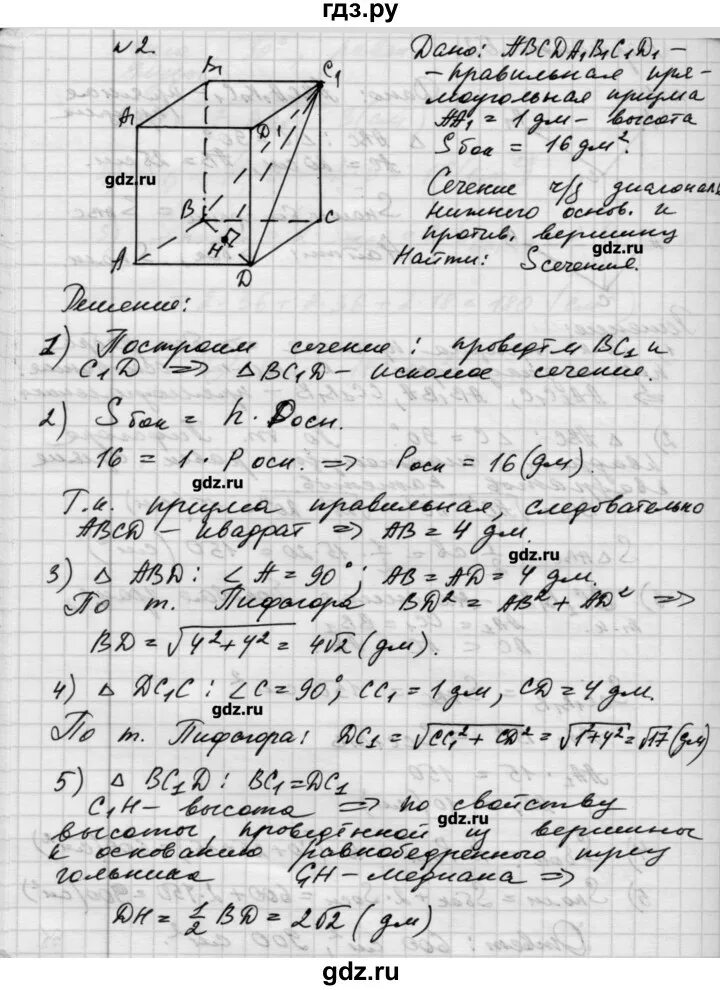 гдз.ру
№2.
B₁
C₁
A₁
D₁
B
C
H
A
D
gdz.ru
gdz.ru
Дано: ABCDA₁B₁C₁D₁ –
- правильная пря-
моугольная призма
AA₁ = 1 дм – высота
Sбок = 16 дм².
Сечение ч/з диагональ
нижнего основ. и
против. вершину
Найти: Sсечения.
Решение:
1) Построим сечение: проведём BC₁ и
C₁D ⇒ △BC₁D – искомое сечение.
gdz.ru
2) Sбок = h · Pосн.
16 = 1 · Pосн. ⇒ Pосн = 16 (дм).
gdz.ru
Т.к. призма правильная, следовательно
ABCD – квадрат ⇒ AB = 4 дм.
gdz.ru
3) △ ABD: ∠A = 90°; AB = AD = 4 дм.
По т. Пифагора BD² = AB² + AD² ⇒
BD = √4²+4² = 4√2 (дм).
4) △ DC₁C: ∠C = 90°, CC₁ = 1 дм, CD = 4 дм.
gdz.ru
По т. Пифагора: DC₁ = √CC₁² + CD² = √1²+4² = √17 (дм)
5) △ BC₁D: BC₁ = DC₁
C₁H – высота ⇒ по свойству
gdz.ru
высоты, проведённой из вершины
к основанию равнобедренного треу
гольника C₁H – медиана ⇒
gdz.ru
DH = 1/2 BD = 2√2 (дм)
gdz.ru